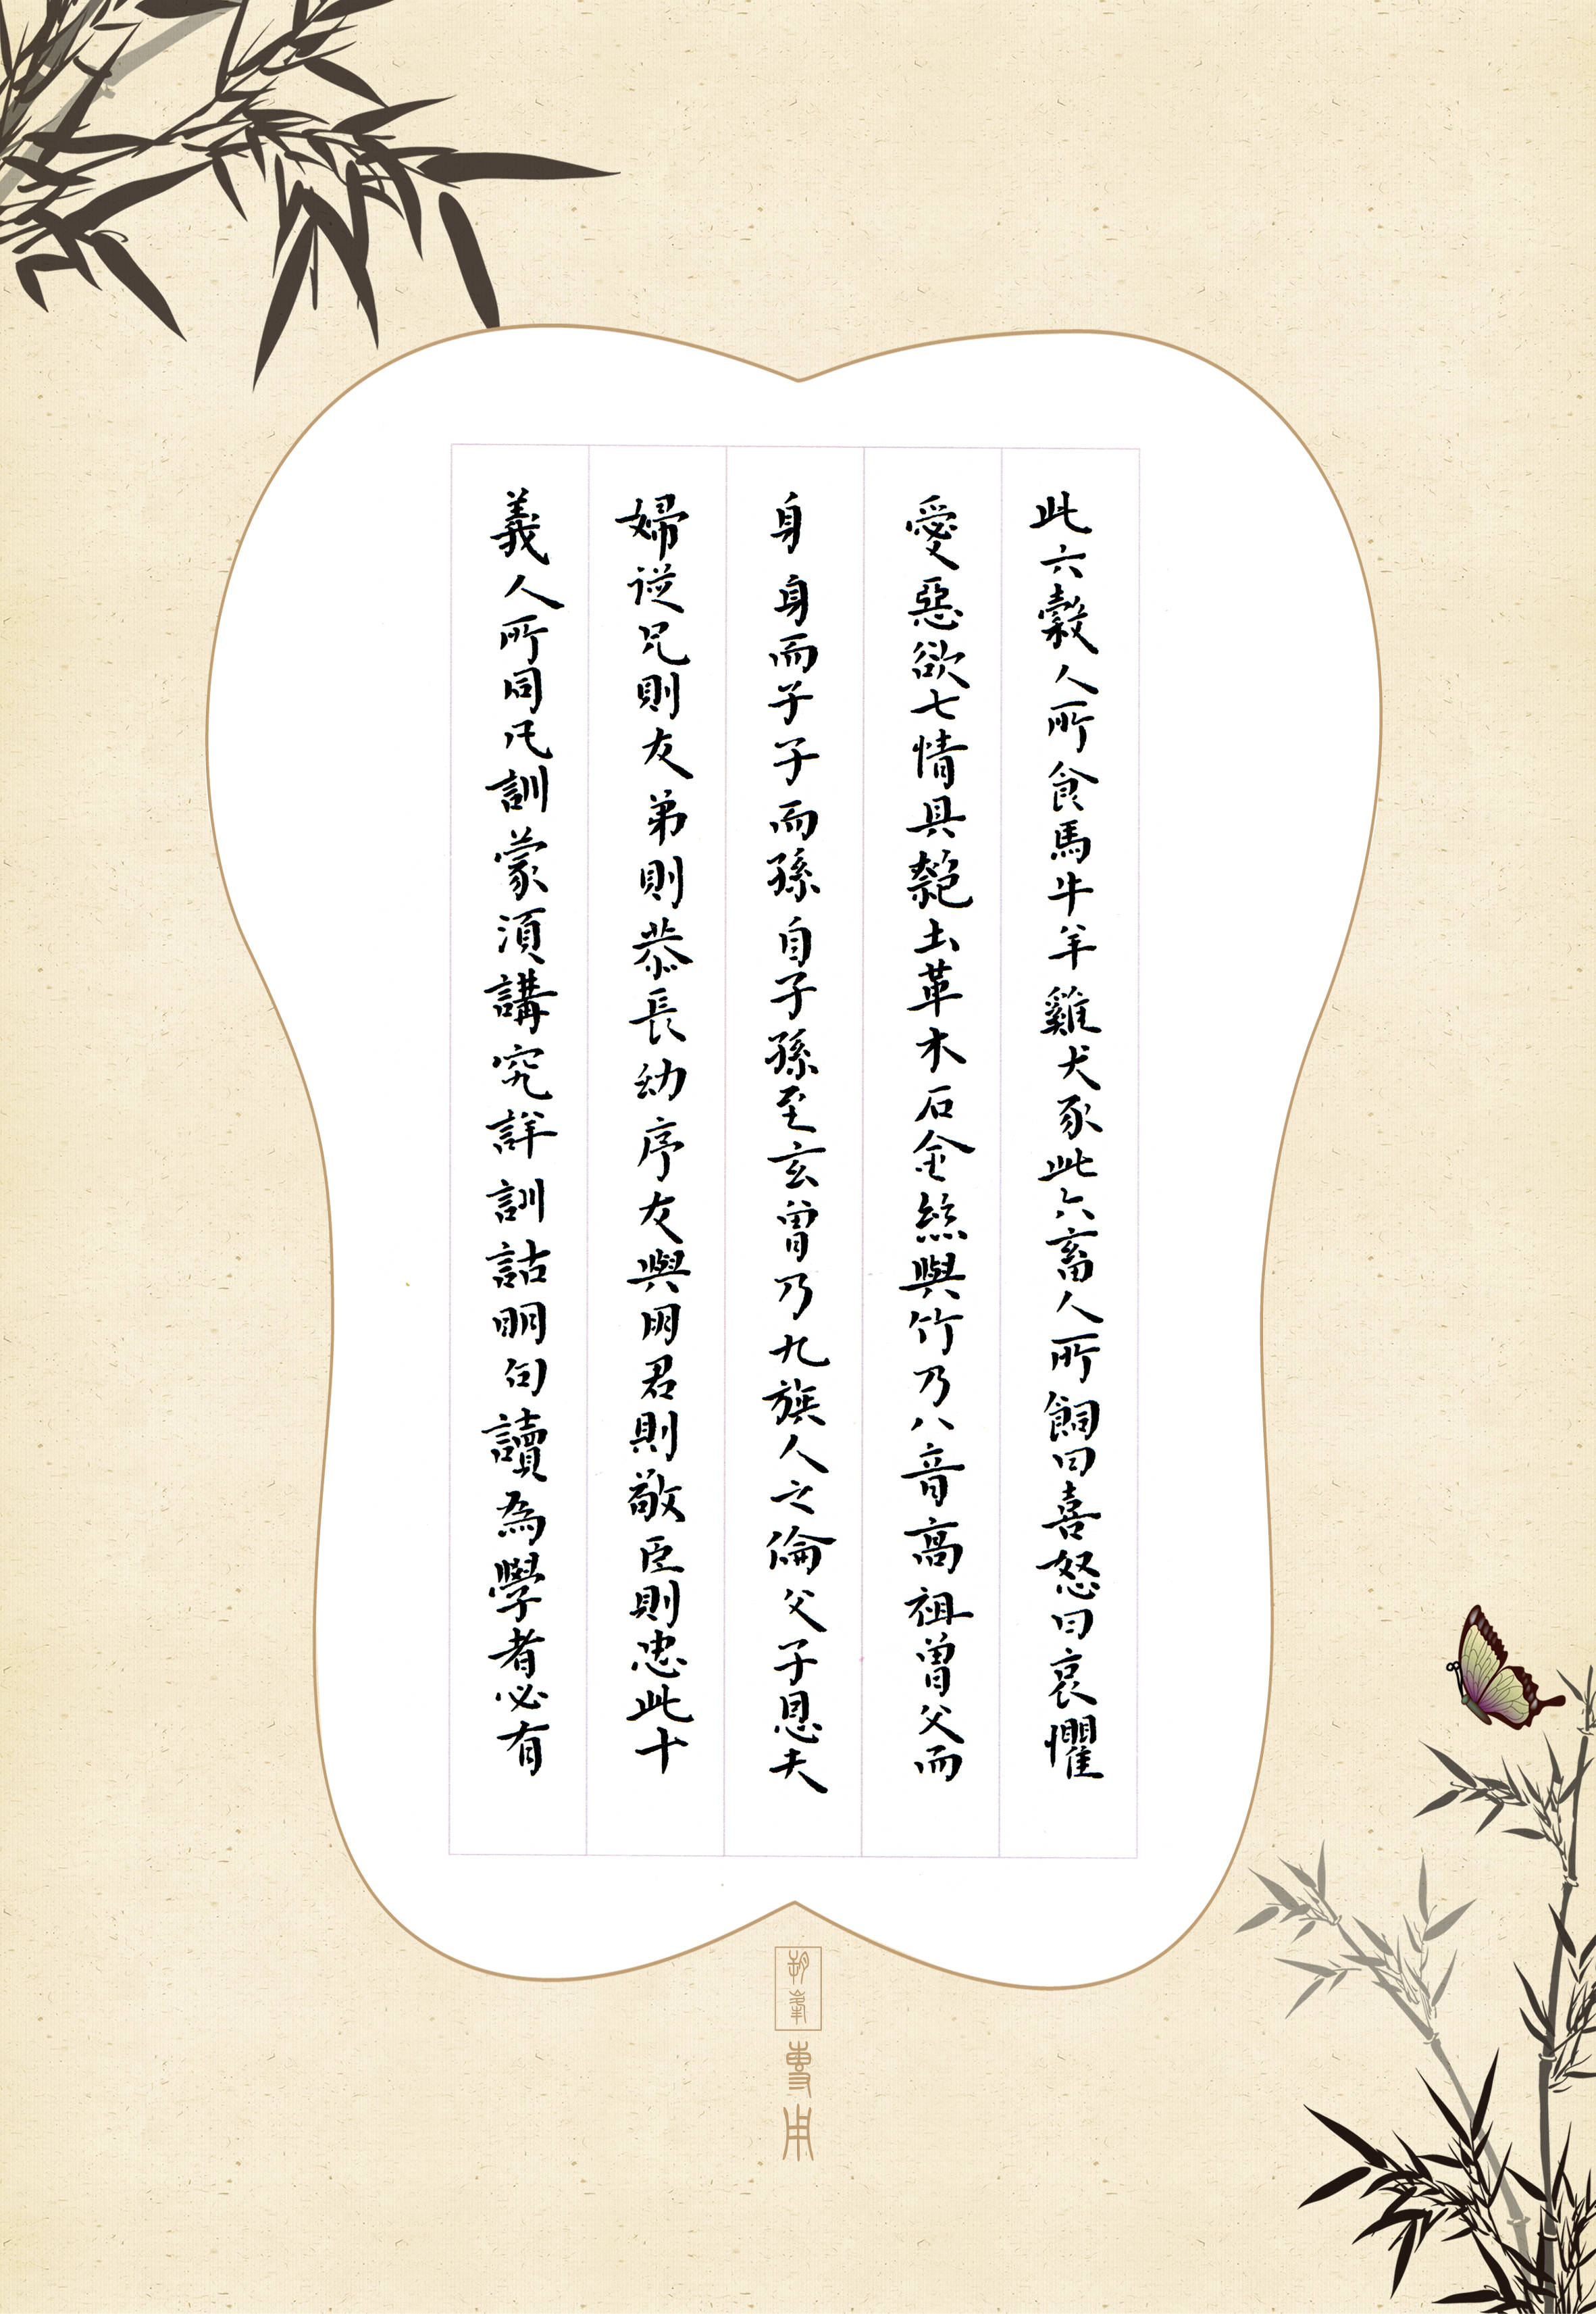 此六穀人所食馬牛羊雞犬豕此六畜人所飼曰喜怒曰哀懼
愛惡欲七情具匏土革木石金絲與竹乃八音高祖曾父而
身身而子子而孫自子孫至玄曾乃九族人之倫父子恩夫
婦從兄則友弟則恭長幼序友與朋君則敬臣則忠此十
義人所同凡訓蒙須講究詳訓詁明句讀為學者必有
專用